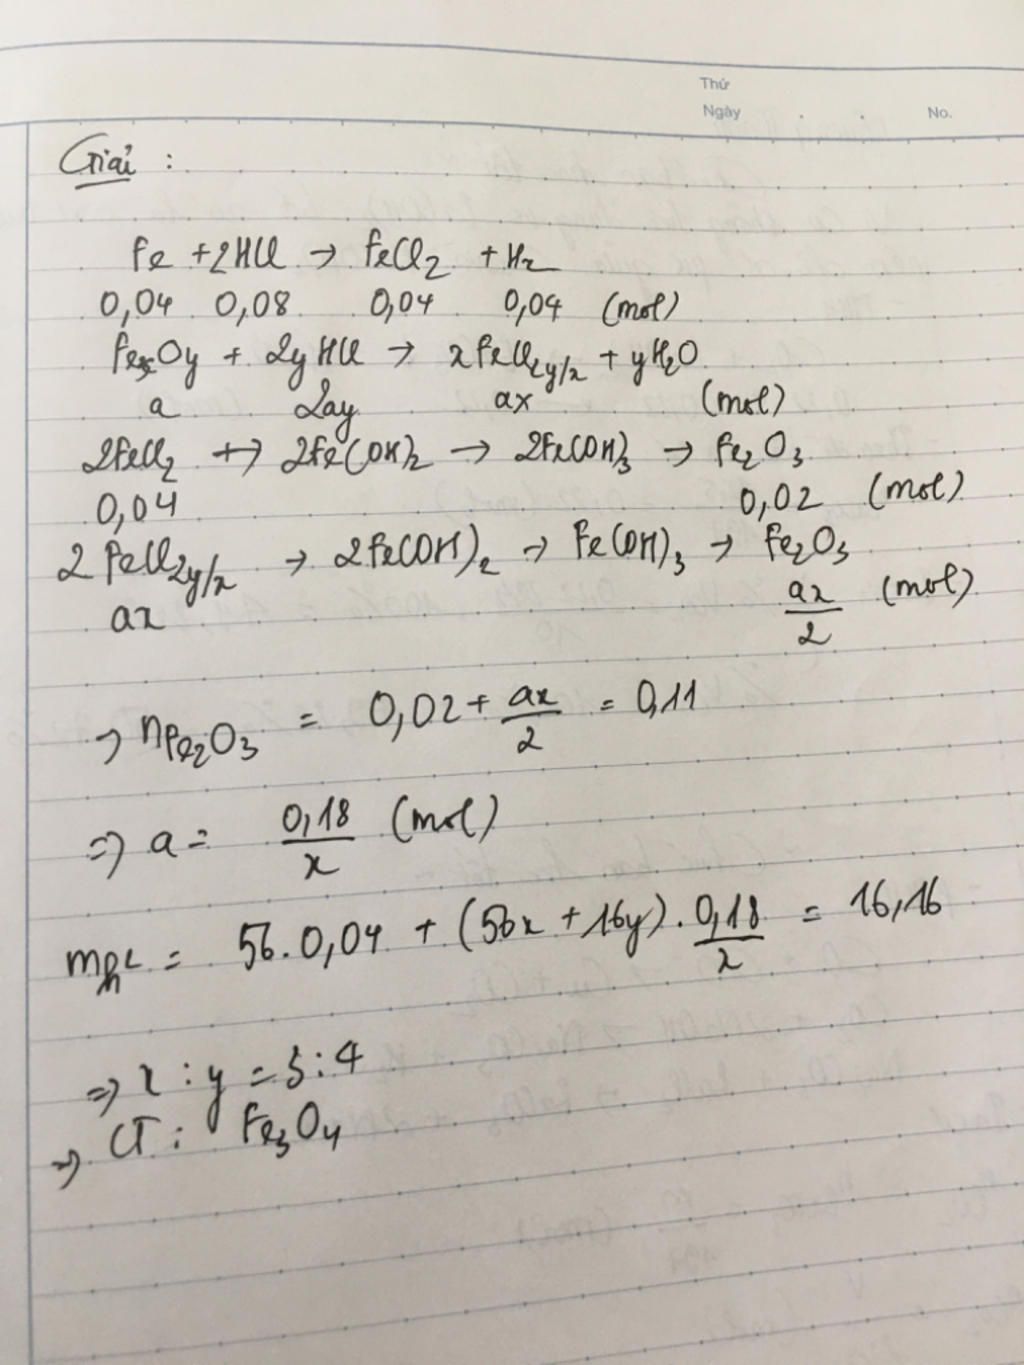 Thứ
Ngày No.
Giải :
Fe + 2HCl → FeCl2 + H2
0,04 0,08 0,04 0,04 (mol)
FexOy + 2yHCl → xFeCl2y/x + yH2O
a 2ay ax (mol)
2FeCl2 → 2Fe(OH)2 → 2Fe(OH)3 → Fe2O3
0,04 0,02 (mol)
2FeCl2y/x → 2Fe(OH)2 → Fe(OH)3 → Fe2O3
ax ax/2 (mol)
→ nFe2O3 = 0,02 + ax/2 = 0,11
=> a = 0,18/x (mol)
mhh = 56.0,04 + (56x + 16y).0,18/x = 16,16
=> x : y = 3:4
=> CT : Fe3O4